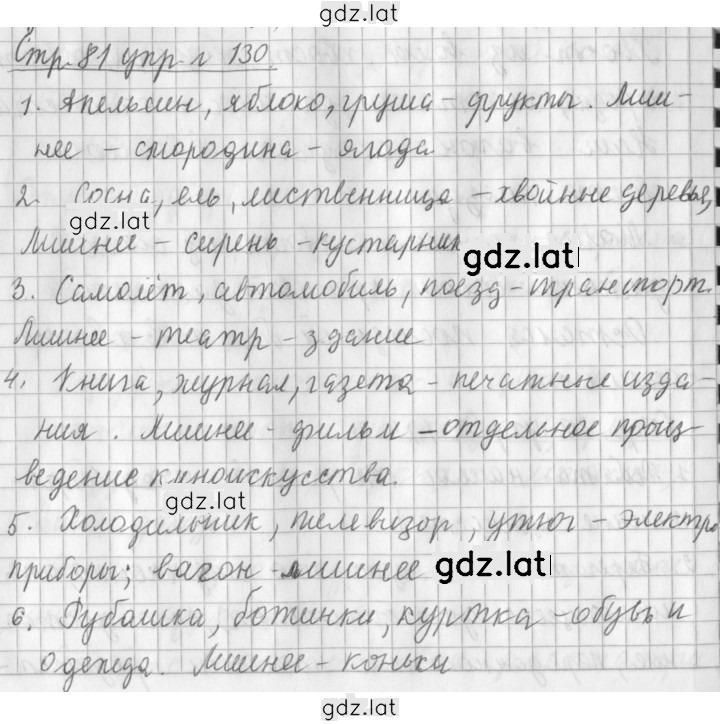 gdz.lat
Стр. 81 упр. г 130.
1. Апельсин, яблоко, груша - фрукты. Лиш-
нее - смородина - ягода
2. Сосна, ель, лиственница - хвойные деревья,
gdz.lat
Лишнее - сирень - кустарник
gdz.lat
3. Самолёт, автомобиль, поезд - транспорт.
Лишнее - театр - здание
4. Книга, журнал, газета - печатные изда-
ния. Лишнее - фильм - отдельное произ-
ведение киноискусства.
gdz.lat
5. Холодильник, телевизор, утюг - электро
приборы; вагон - лишнее
gdz.lat
6. Рубашка, ботинки, куртка - обувь и
одежда. Лишнее - коньки
gdz.lat